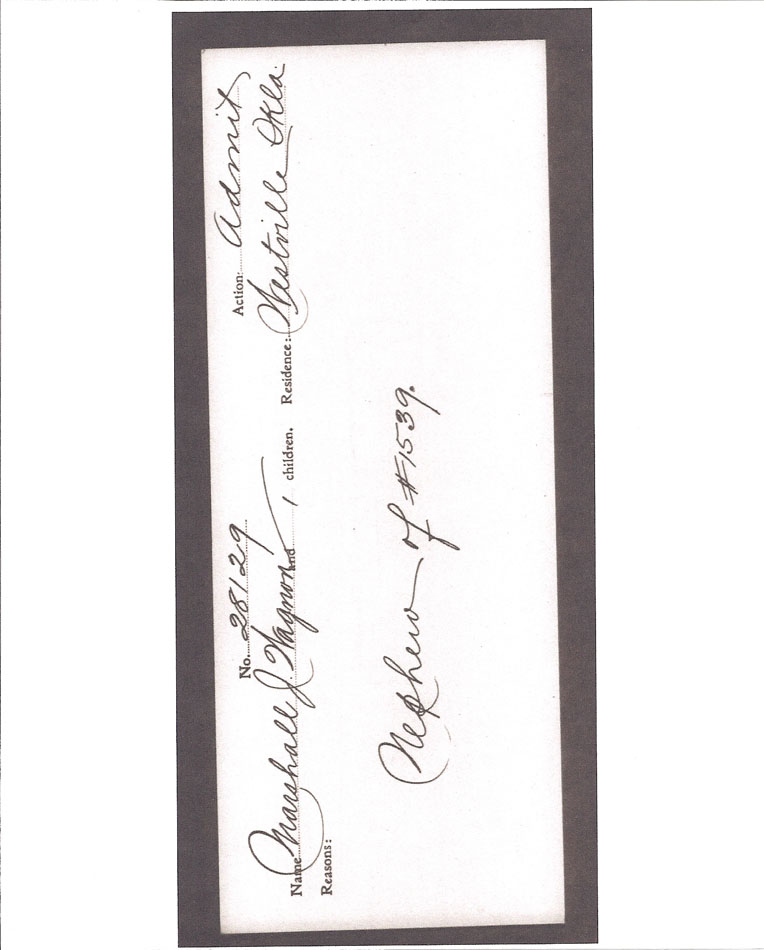 No. 28129 Action: Admit
Name Marshall J. Wagnon and 1 children. Residence: Westville Okla.
Reasons:
Nephew of #1539.